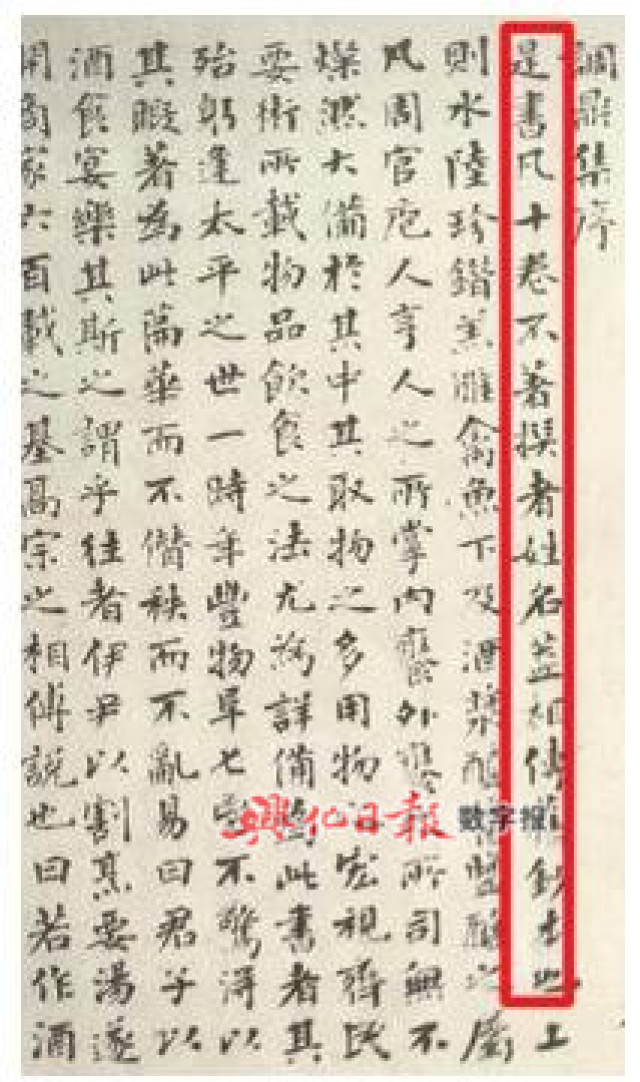 調鼎集序
是書凡十卷不著撰者姓名蓋相傳舊鈔本也上
則水陸珍錯羔雁禽魚下及酒漿醯醬鹽醢之屬
凡周官庖人亨人之所掌內饔外饔之所司無不
燦然大備於其中其取物之多用物之宏視齊民
要術所載物品飲食之法尤為詳備為此書者其
殆躬逢太平之世一時年豐物阜匕鬯不驚得以
其暇著為此篇華而不僭秩而不亂易曰君子以
酒食宴樂其斯之謂乎往者伊尹以割烹要湯遂
開商家六百載之基高宗之相傅說也曰若作酒
興化日報 数字报